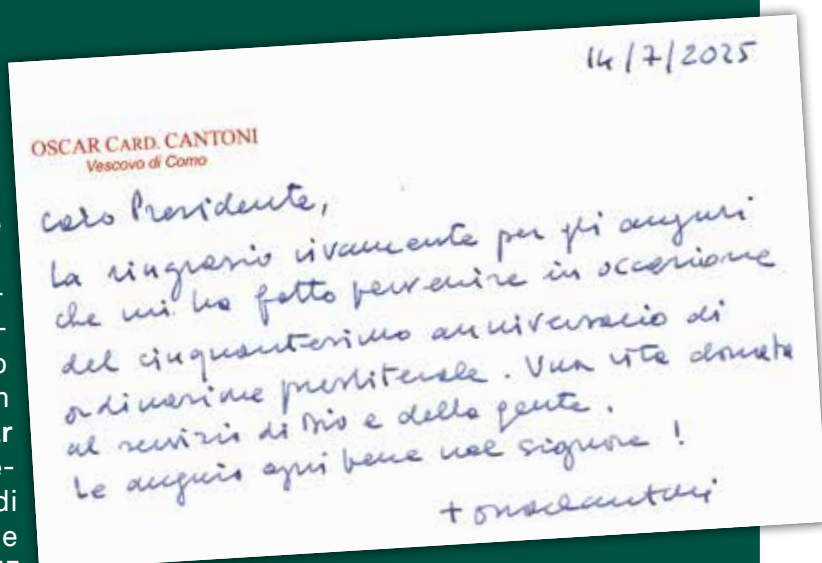 14/7/2025
OSCAR CARD. CANTONI
Vescovo di Como
Caro Presidente,
La ringrazio vivamente per gli auguri
che mi ha fatto pervenire in occasione
del cinquantesimo anniversario di
ordinazione presbiterale. Una vita donata
al servizio di Dio e della gente.
Le auguro ogni bene nel Signore!